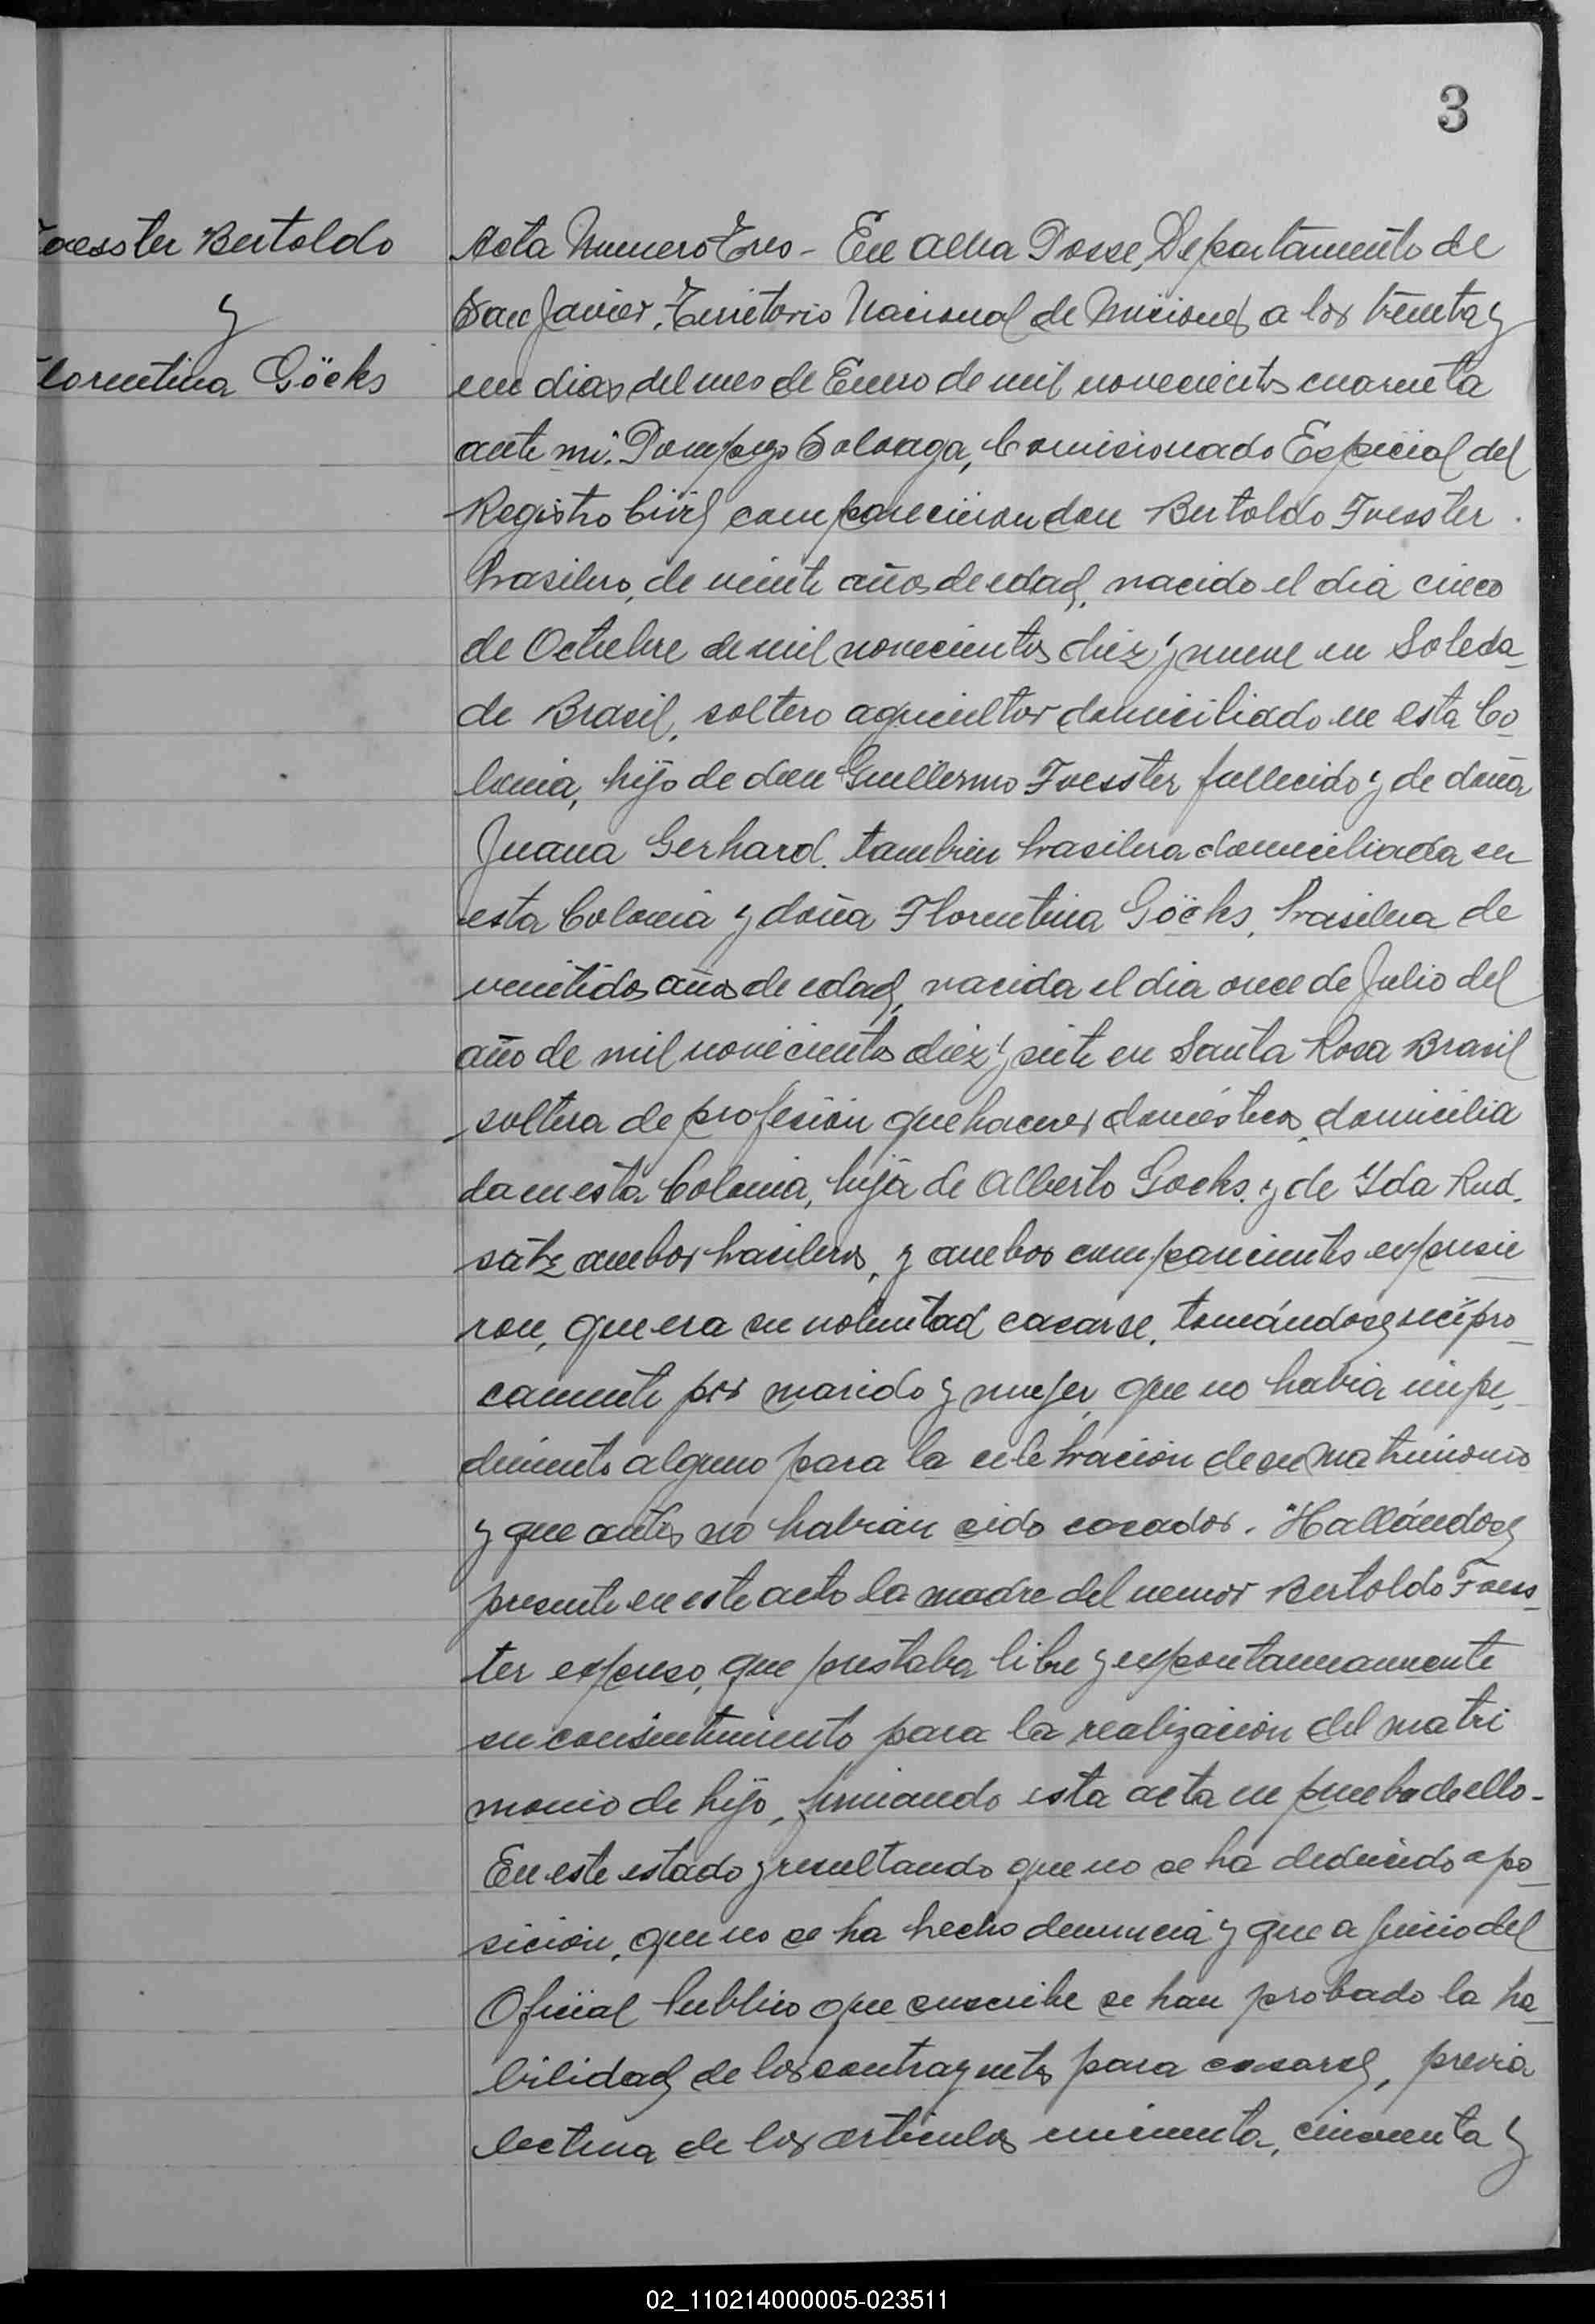 3
oesster Bertoldo
y
lorentina Göcks
Acta Numero Tres - En Alba Posse, Departamento de
San Javier, Territorio Nacional de Misiones a los treinta y
un dias del mes de Enero de mil novecientos cuarenta
ante mi: Pompeyo Boloaga, Comisionado Especial del
Registro Civil comparecieron don Bertoldo Foesster
brasilero, de veinte años de edad, nacido el dia cinco
de Octubre de mil novecientos diez y nueve en Soleda-
de Brasil, soltero agricultor domiciliado en esta Co
lonia, hijo de don Guillermo Foesster fallecido y de doña
Juana Gerhard. tambien brasilera domiciliada en
esta Colonia y doña Florentina Göcks, brasilera de
veintidos años de edad, nacida el dia once de Julio del
año de mil novecientos diez y siete en Santa Rosa Brasil
soltera de profesión quehaceres domésticos, domicilia
da en esta Colonia, hija de Alberto Gocks. y de Yda Rud-
satz ambos brasileros, y ambos comparecientes expusie
ron, que era su voluntad casarse, tomándose recipro
camente por marido y mujer, que no habia impe-
dimento alguno para la celebración de su matrimonio
y que antes no habian sido casados. Hallándose
presente en este acto la madre del menor Bertoldo Foess-
ter expuso, que prestaba libre y expontaneamente
su consentimiento para la realización del matri
monio de hijo, firmando esta acta en prueba de ello-
En este estado y resultando que no se ha deducido opo
sicion, que no se ha hecho denuncia y que a juicio del
Oficial Publico que suscribe se han probado la ha
bilidad de los contrayentes para casarse, previa
lectura de los articulos cincuenta y
02_110214000005-023511